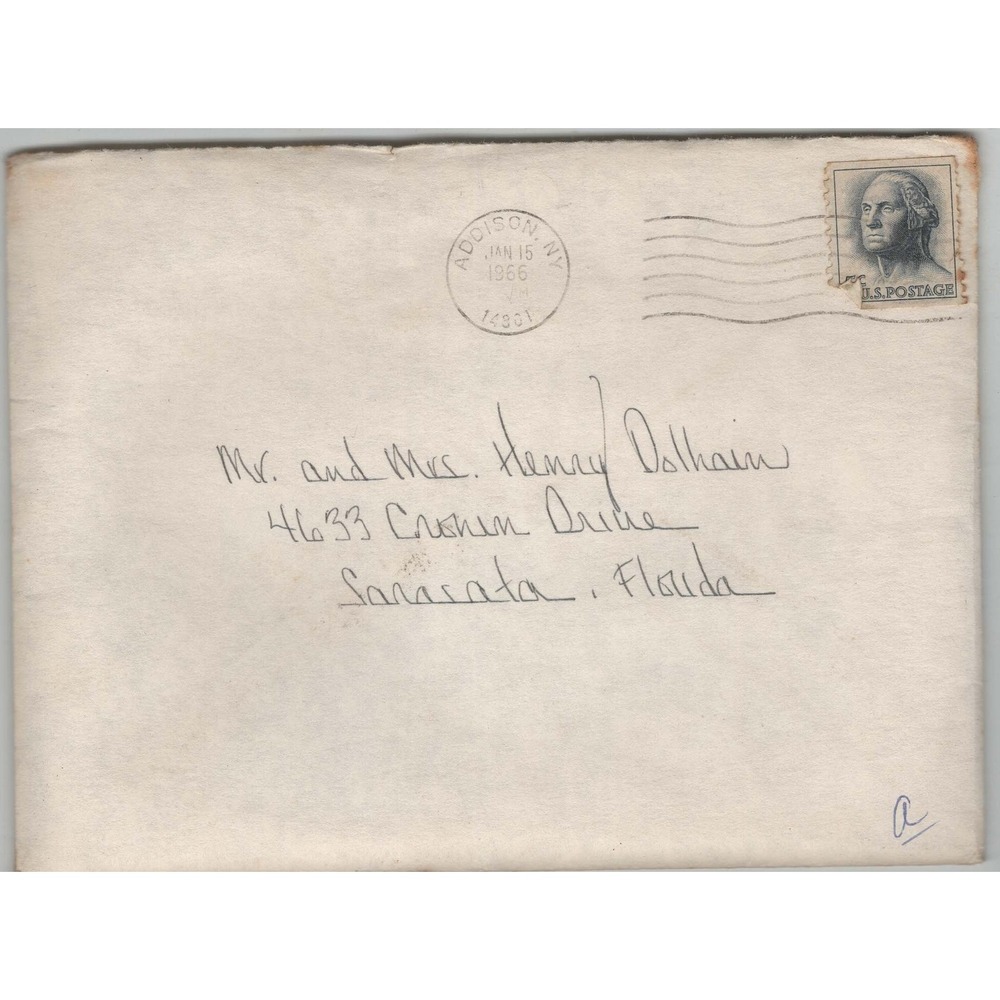 ADDISON, NY
JAN 15
1966
14801
U.S. POSTAGE
Mr. and Mrs. Henry Dolhain
4633 Cronin Drive
Sarasota, Florida
a